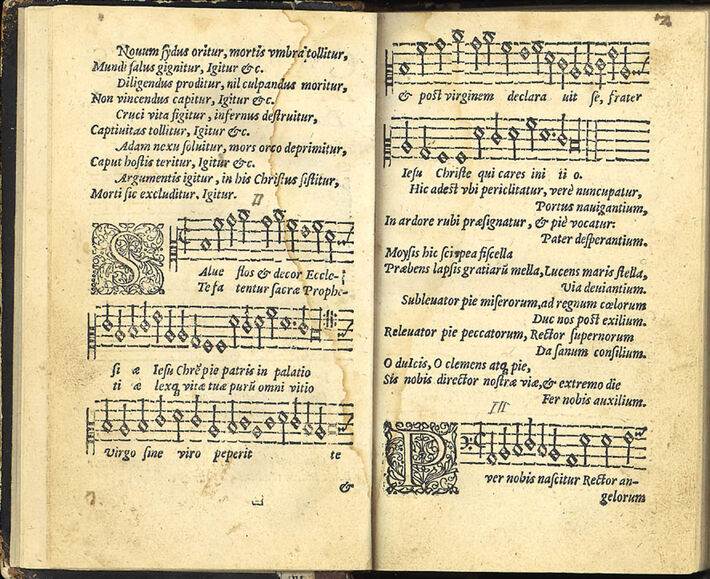 Nouum ſydus oritur, mortis vmbra tollitur,
Mundi ſalus gignitur, Igitur &c.
Diligendus proditur, nil culpandus moritur,
Non vincendus capitur, Igitur &c.
Cruci vita figitur, infernus deſtruitur,
Captiuitas tollitur, Igitur &c.
Adam nexu ſoluitur, mors orco deprimitur,
Caput hoſtis teritur, Igitur &c.
Argumentis igitur, in his Chriſtus ſiſtitur,
Morti ſic excluditur, Igitur.
II
S
Alue flos & decor Eccle-
Te fa tentur ſacræ Prophe-
ſi æ Ieſu Chrẽ pie patris in palatio
ti æ lexq, vitæ tuæ purũ omni vitio
Virgo ſine viro peperit te
&
& poſt virginem declara uit ſe, frater
Ieſu Chriſte qui cares ini ti o.
Hic adeſt vbi periclitatur, verè nuncupatur,
Portus nauigantium,
In ardore rubi præſignatur, & piè vocatur:
Pater deſperantium.
Moyſis hic ſcirpea fiſcella
Præbens lapſis gratiarũ mella, Lucens maris ſtella,
Via deuiantium.
Subleuator pie miſerorum, ad regnum cœlorum
Duc nos poſt exilium.
Releuator pie peccatorum, Rector ſupernorum
Da ſanum conſilium.
O dulcis, O clemens atq, pie,
Sis nobis director noſtræ viæ, & extremo die
Fer nobis auxilium.
III
P
ver nobis naſcitur Rector an-
gelorum